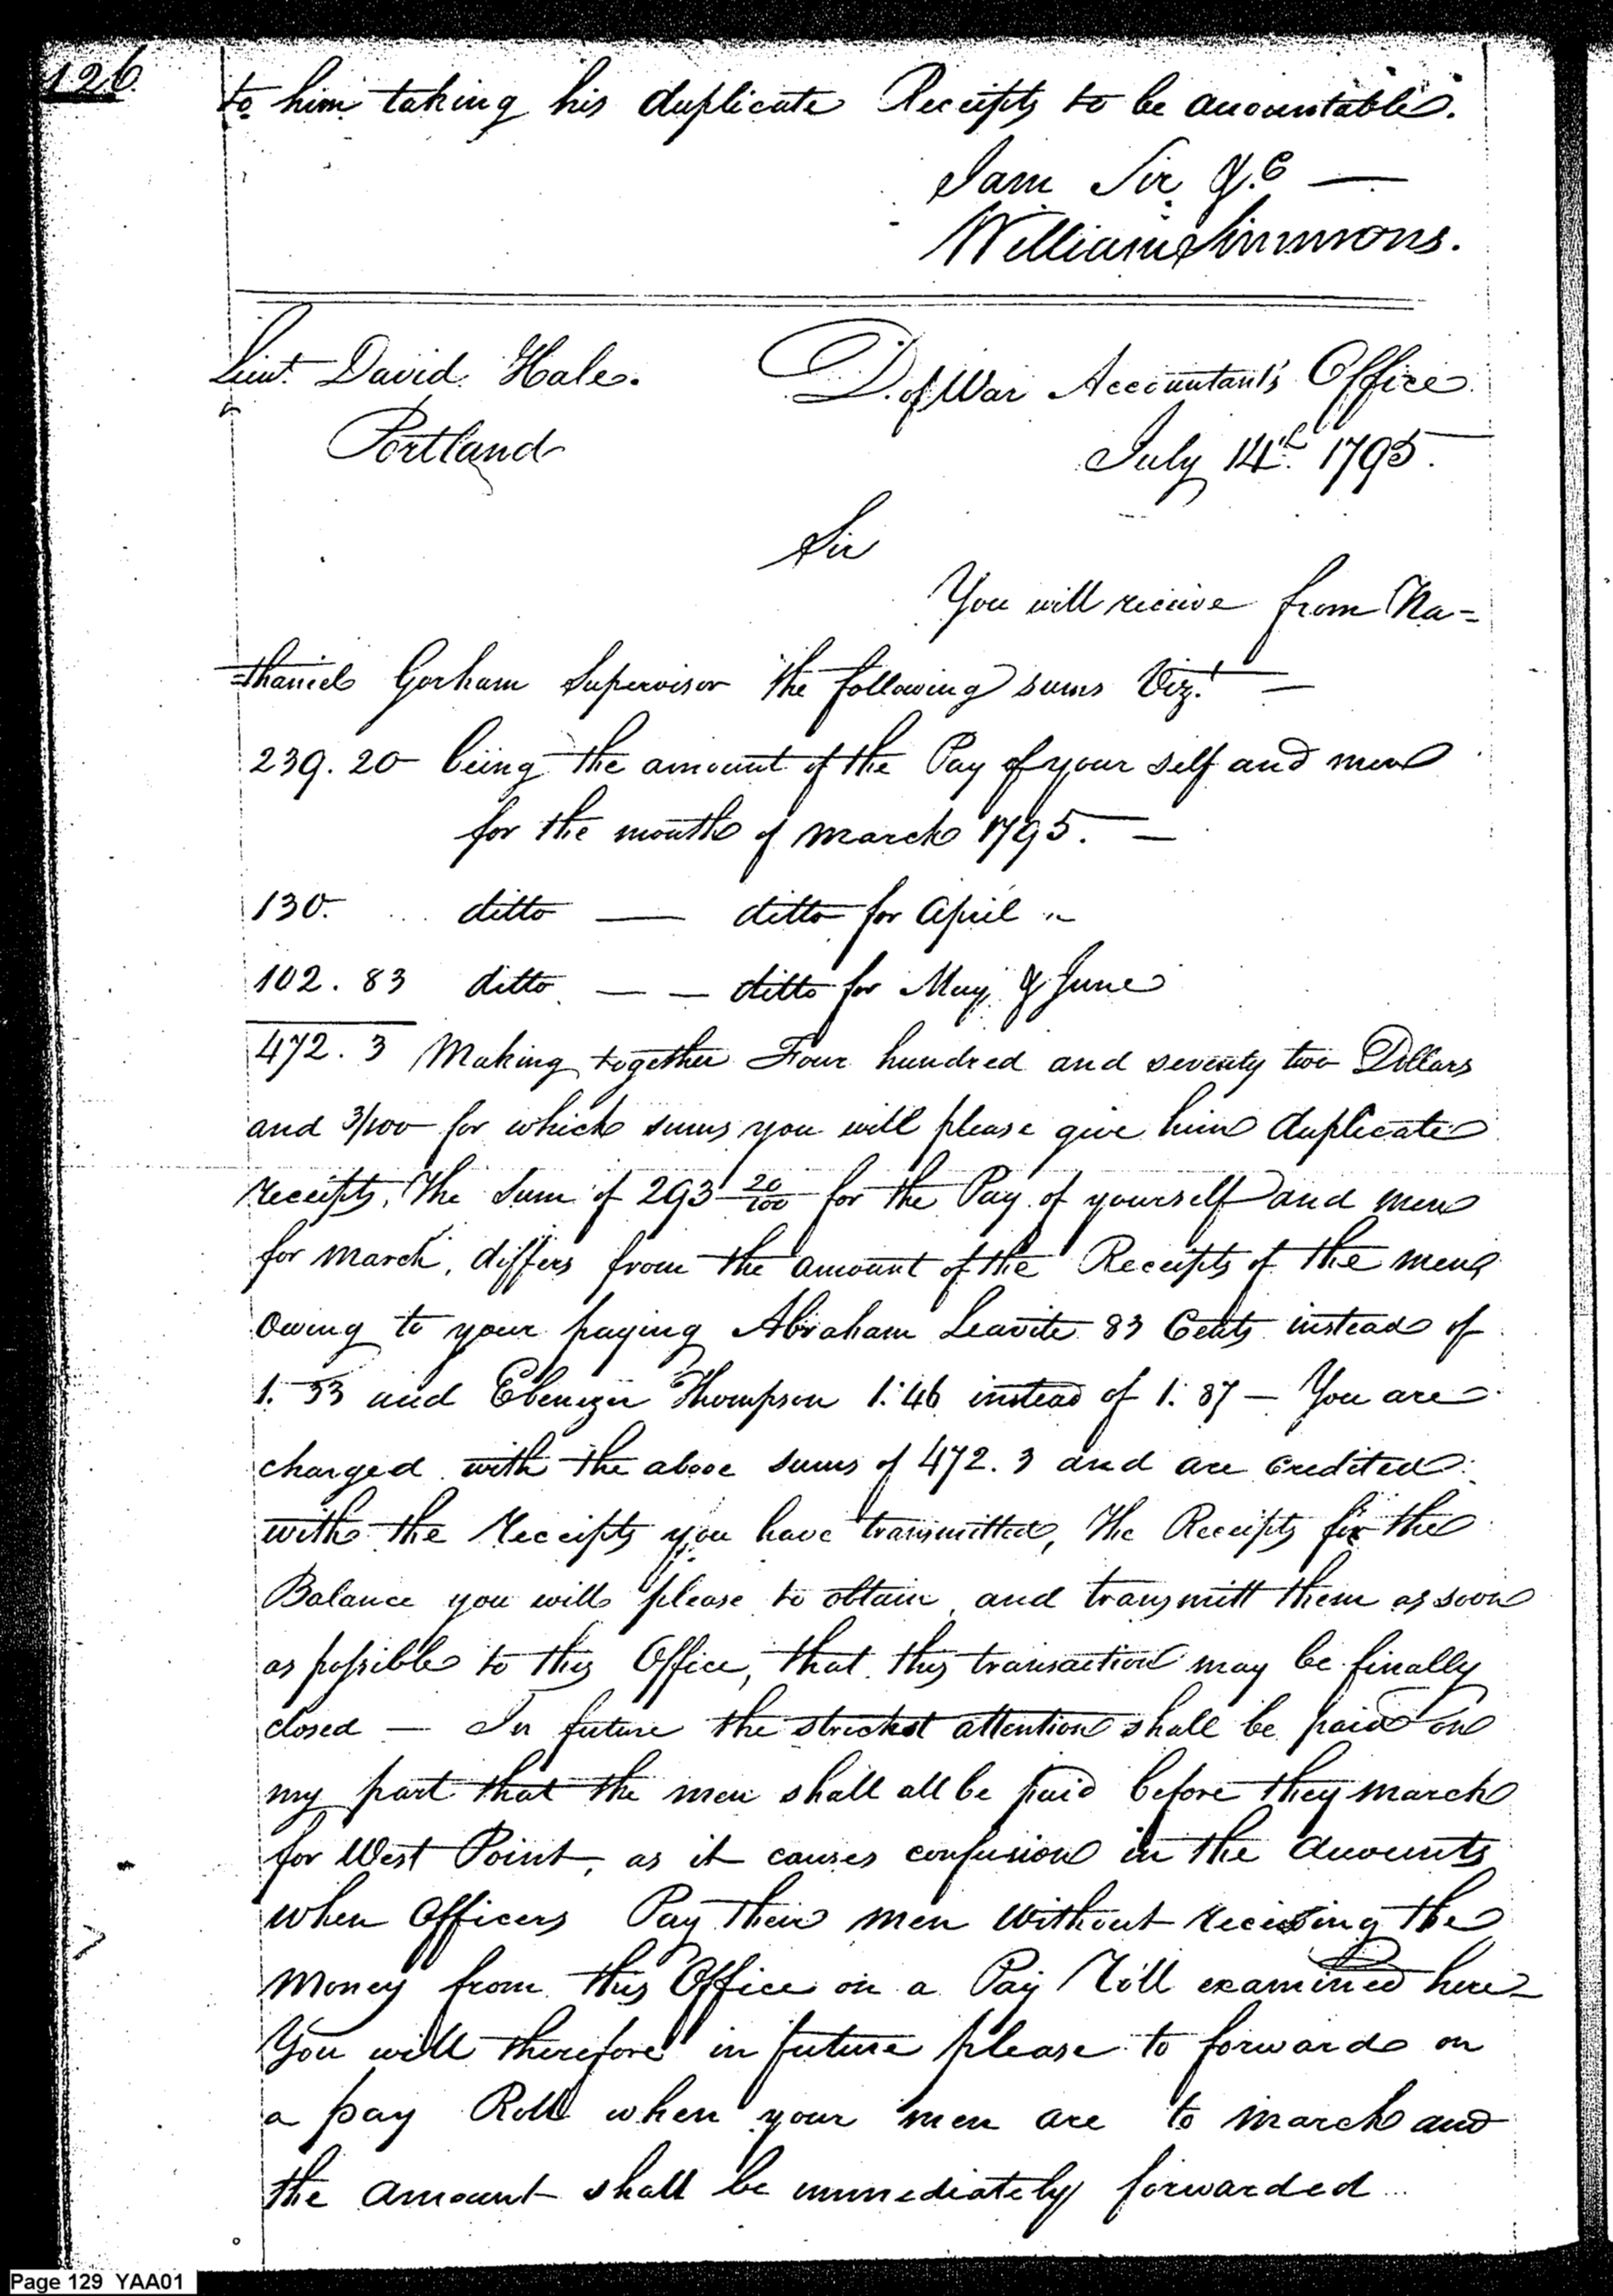 126.
to him taking his duplicate Receipts to be accountable.
I am Sir &.c —
William Simmons.
Lieut. David Hale. D. of War Accountant's Office
Portland July 14th. 1795.
Sir
You will receive from Na=
=thaniel Gorham Supervisor the following sums Viz.t —
239.20 being the amount of the Pay of your self and men
for the month of march 1795. —
130. .. ditto — ditto for April "
102.83 ditto — — ditto for May & June
472.3 Making together Four hundred and seventy two Dollars
and 3/100 for which sums you will please give him duplicate
receipts. The Sum of 293 20/100 for the Pay of yourself and men
for march, differs from the amount of the Receipts of the men,
owing to your paying Abraham Leavite 83 Cents instead of
1.33 and Ebenezer Thompson 1:46 instead of 1:87 — You are
charged with the above sums of 472.3 and are credited
with the receipts you have transmitted, The Receipts for the
Balance you will please to obtain and transmitt them as soon
as possible to this Office, that this transaction may be finally
closed — In future the strickest attention shall be paid on
my part that the men shall all be paid before they march
for West Point, as it causes confusion in the Accounts
when Officers Pay their men without receiving the
Money from this Office on a Pay Roll examined here
You will therefore in future please to forward on
a pay Roll when your men are to march and
the Amount shall be immediately forwarded ..
Page 129 YAA01